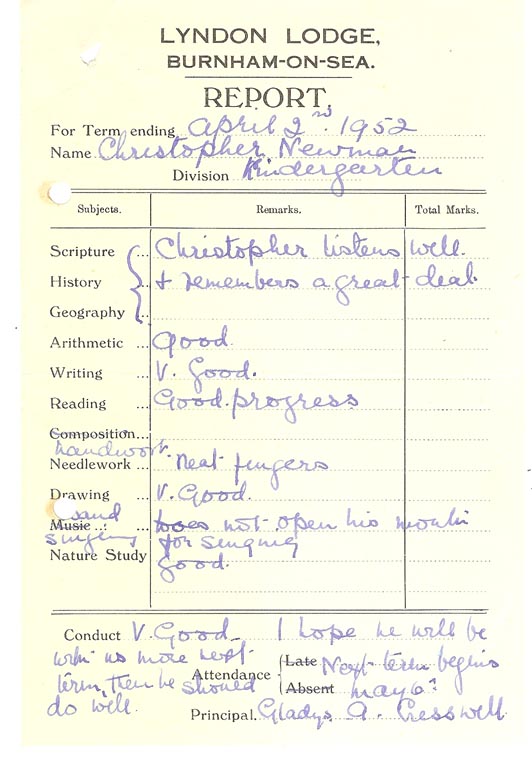 LYNDON LODGE,
BURNHAM-ON-SEA.
REPORT.
For Term ending April 2nd. 1952
Name Christopher Newman
Division Kindergarten
Subjects. Remarks. Total Marks.
Scripture ... Christopher listens well.
History ... + remembers a great deal.
Geography ...
Arithmetic ... Good.
Writing ... V. Good.
Reading ... Good progress
Composition...
handwork.
Needlework ... Neat fingers
Drawing ... V. Good.
Music ... and ... Does not open his mouth
singing for singing
Nature Study Good.
Conduct V. Good. I hope he will be
with us more next
term, then he should
do well.
Attendance
Late Next term begins
Absent May 6th
Principal. Gladys A. Cresswell